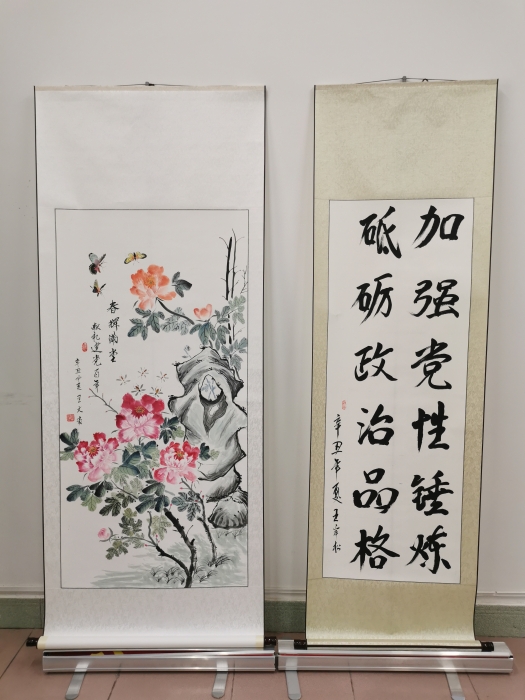 加强党性锤炼
砥砺政治品格
辛丑年夏王
春辉满堂
敬祝建党百年
辛丑